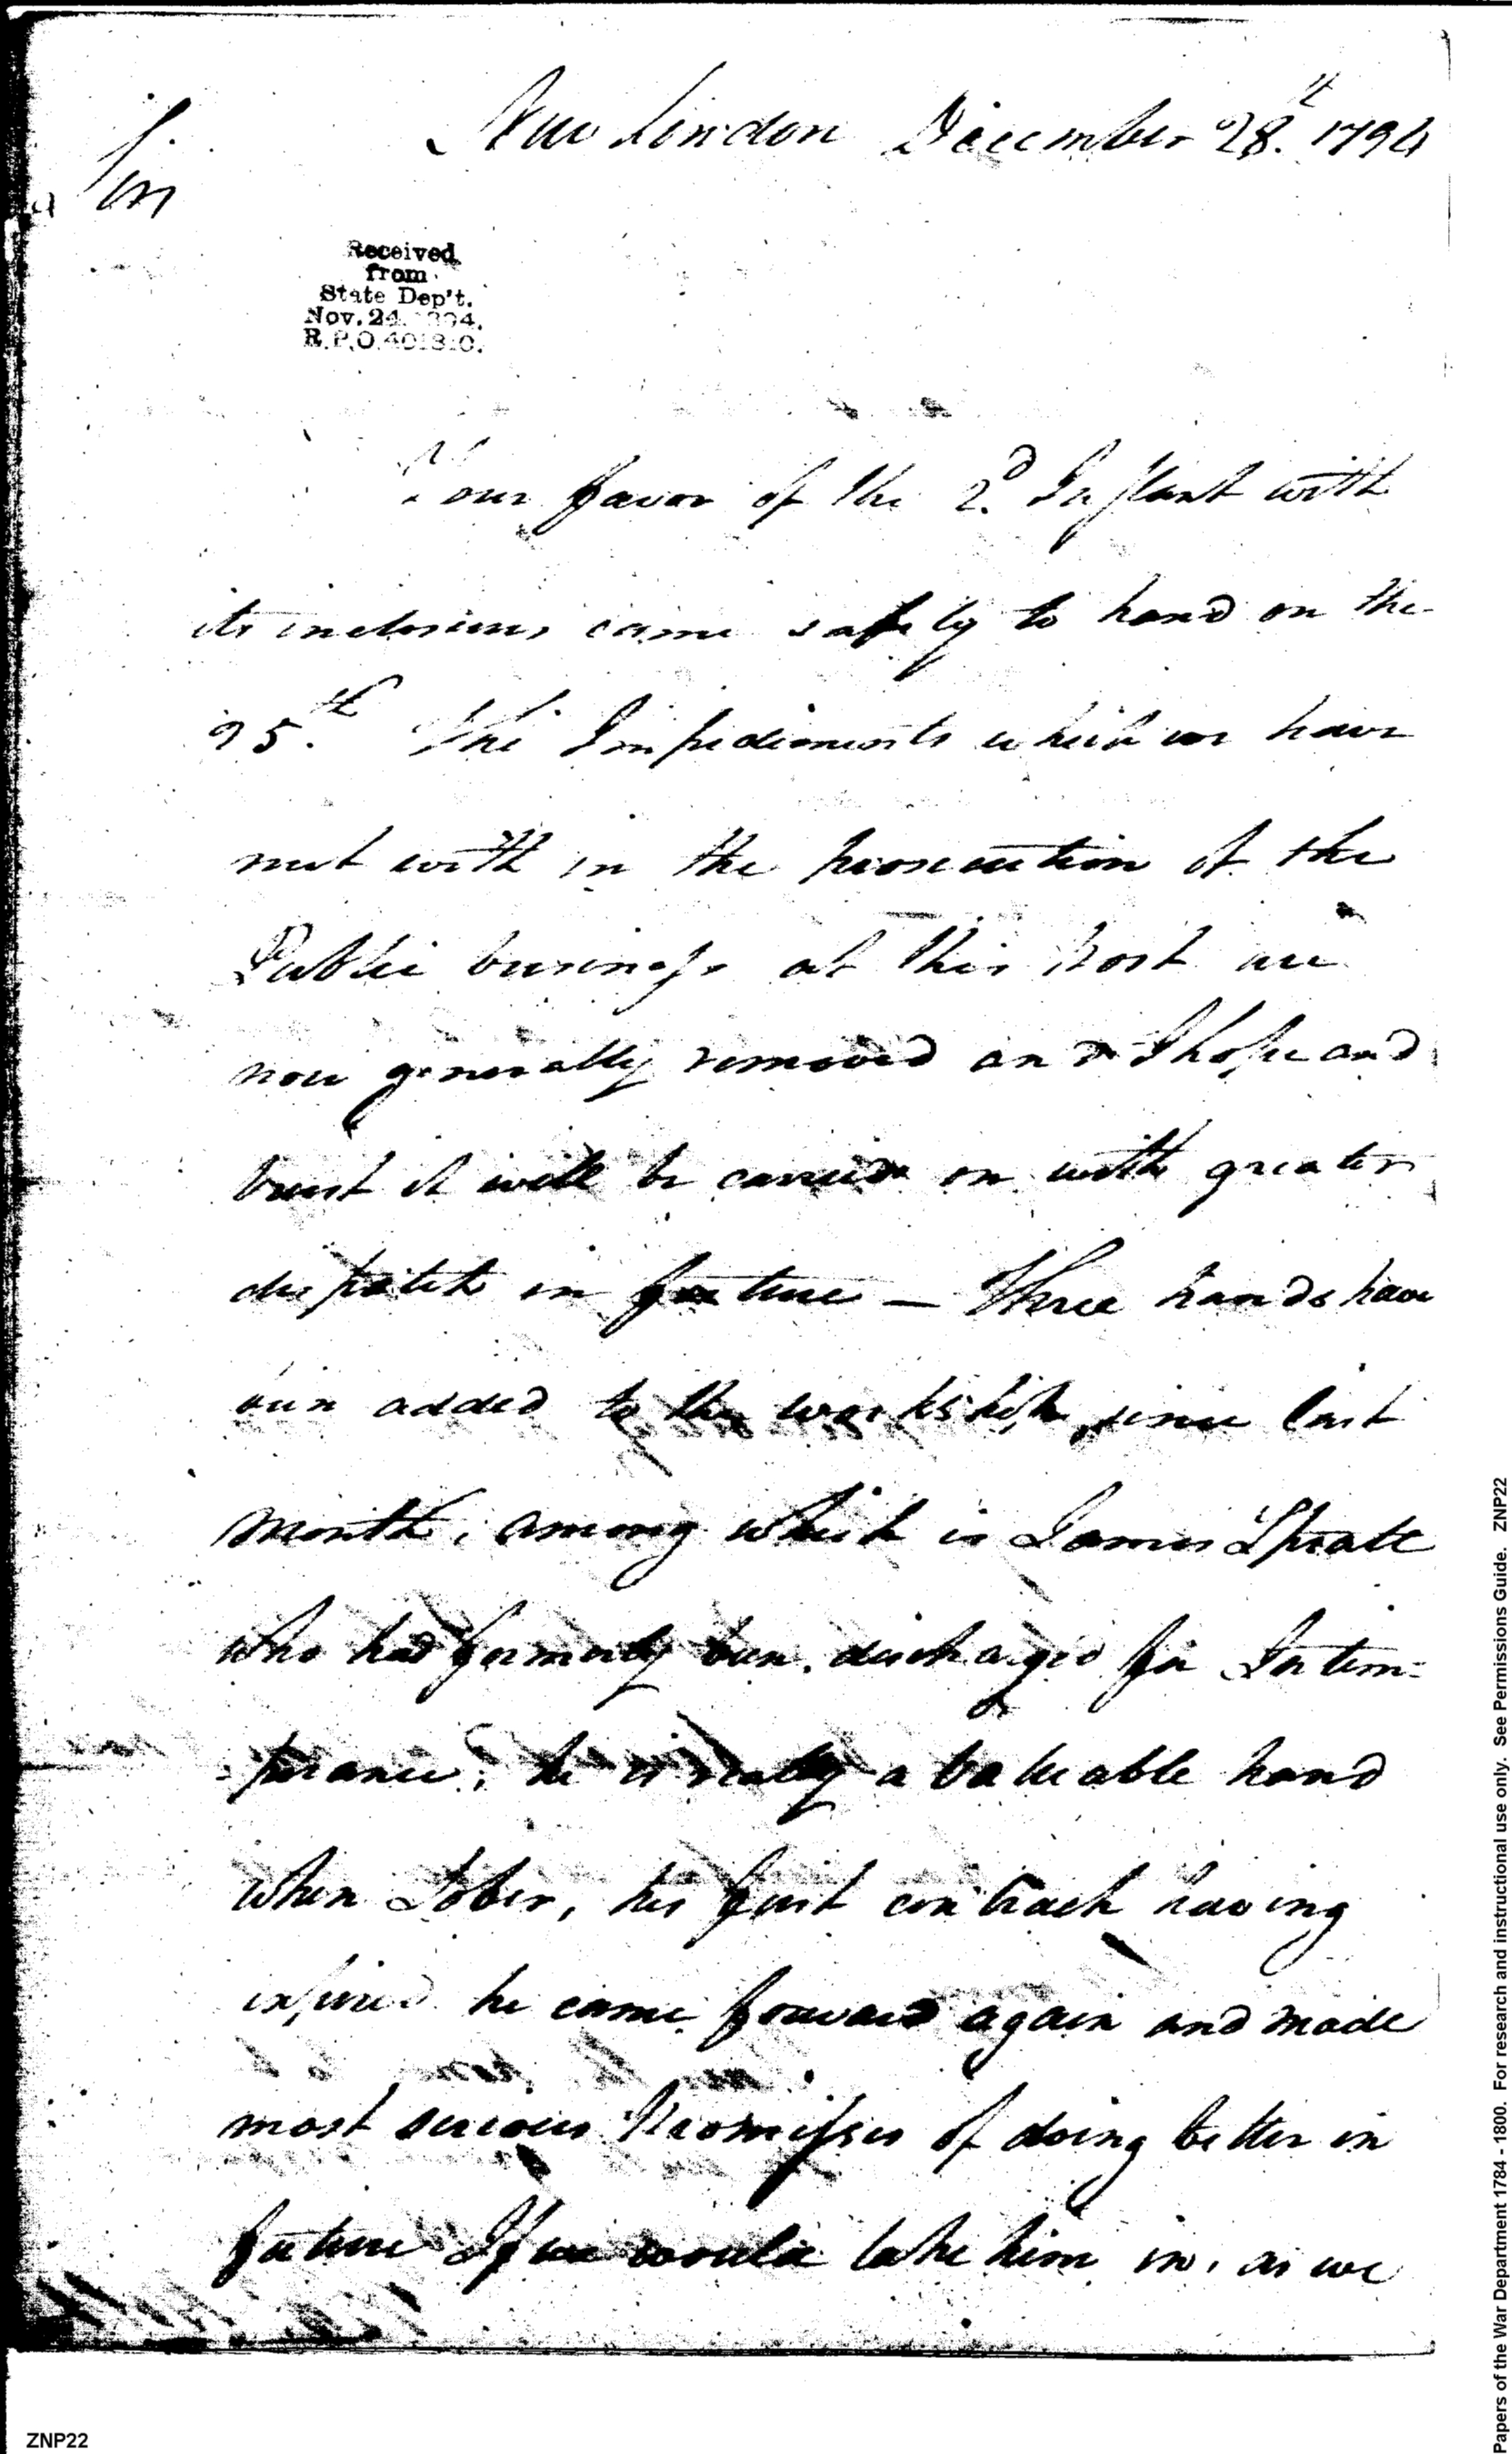 New London December 28.th 1794
Sir
Received
from
State Dep't.
Nov. 24. 1894.
R.P.O. 401810.
Your favor of the 2.d Instant with
its inclosures came safely to hand on the
25.th The Impediments which we have
met with in the prosecution of the
Public business at this Post are
now generally removed and I hope and
trust it will be carried on with greater
dispatch in future — Three hands have
been added to the workshop since last
Month, among which is James Spratt
who had formerly been discharged for Intem=
=perance; he is really a valuable hand
when Sober, his first contract having
expired he came forward again and made
most serious Promisses of doing better in
future If we would take him in, as we
Papers of the War Department 1784 - 1800. For research and instructional use only. See Permissions Guide. ZNP22
ZNP22